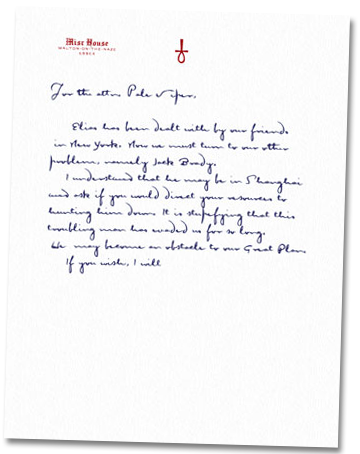 Mist House
WALTON-ON-THE-NAZE
ESSEX
For the attn. Pale Viper.
Elias has been dealt with by our friends
in New York. Now we must turn to our other
problem, namely Jack Brady.
I understand that he may be in Shanghai
and ask if you would direct your resources to
hunting him down. It is stupefying that this
troubling man has evaded us for so long.
He may become an obstacle to our Great Plan.
If you wish, I will